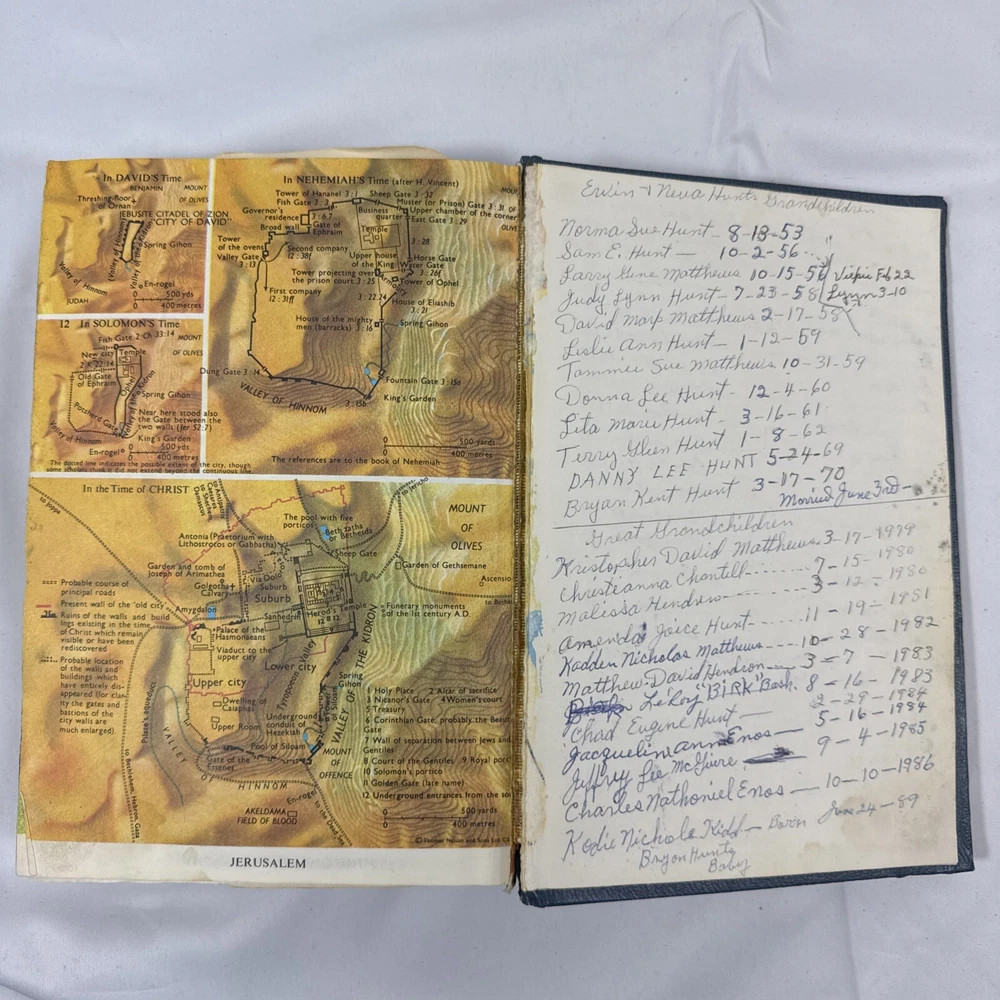 In DAVID'S Time
BENJAMIN
MOUNT
OF OLIVES
Threshing-floor
of Ornan
JEBUSITE CITADEL OF ZION
"CITY OF DAVID"
Valley of Hinnom
Spring Gihon
Valley of Hinnom
En-rogel
JUDAH
0 500 yds
0 400 metres
12 In SOLOMON'S Time
Fish Gate 2 Ch 33:14
MOUNT
OF OLIVES
New city
2 K 22:14
Temple
Old Gate
of Ephraim
Ophel
Spring Gihon
Potsherd Gate
Near here stood also
the Gate between the
two walls (Jer 52:7)
Valley of Hinnom
King's Garden
En-rogel
0 500 yds
0 400 metres
The dotted line indicates the possible extent of the city, though
In NEHEMIAH'S Time (after H. Vincent)
Tower of Hananel 3:1
Sheep Gate 3:32
Fish Gate 3:3
Muster (or Prison) Gate 3:31
Governor's
residence
3:6,7
Business
quarter
Upper chamber of the corner
East Gate 3:29
Broad wall
Gate of
Ephraim
Temple
Tower
of the ovens
Second company
12:38f
3:28
Valley Gate
3:13
Upper house
of the King
Horse Gate
Water Gate
3:26f
Tower projecting over
the prison court 3:25
Tower of Ophel
First company
12:31ff
3:22,24
House of Eliashib
3:21
House of the mighty
men (barracks) 3:16
Spring Gihon
Dung Gate 3:14
Fountain Gate 3:15a
VALLEY OF HINNOM
3:15b
King's Garden
0 500 yards
0 400 metres
The references are to the book of Nehemiah
In the Time of CHRIST
to Joppa
to Damascus
to Jericho
The pool with five
porticos
Beth-zatha
or Bethesda
MOUNT
OF
OLIVES
Antonia (Praetorium with
Lithostrocos or Gabbatha)
Sheep Gate
Garden and tomb of
Joseph of Arimathea
Garden of Gethsemane
Golgotha
Calvary
Via Dolorosa
Suburb
Suburb
Ascension
Probable course of
principal roads
Present wall of the 'old city'
Ruins of the walls and build
ings existing in the time
of Christ which remain
visible or have been
rediscovered
Probable location
of the walls and
buildings which
have entirely dis-
appeared (for clar
ity the gates and
bastions of the
city walls are
much enlarged)
Amygdalon
Sanhedrin
Herod's Temple
Funerary monuments
of the 1st century A.D.
Palace of the
Hasmonaeans
Viaduct to the
upper city
Lower city
Tyropoeon Valley
VALLEY OF THE KIDRON
Upper city
Spring
Gihon
Dwelling of
Caiaphas
Upper Room
Underground
conduit of
Hezekiah
Pool of Siloam
Pilate's aqueduct
VALLEY
Gate of the
Essenes
HINNOM
MOUNT
OF
OFFENCE
En-rogel
to the Dead Sea
AKELDAMA
FIELD OF BLOOD
to Bethlehem, Hebron, Gaza
1 Holy Place 2 Altar of sacrifice
3 Nicanor's Gate 4 Women's court
5 Treasury
6 Corinthian Gate, probably the Beautiful
Gate
7 Wall of separation between Jews and
Gentiles
8 Court of the Gentiles 9 Royal portico
10 Solomon's portico
11 Golden Gate (late name)
12 Underground entrances from the
0 500 yards
0 400 metres
© Thomas Nelson and Sons Ltd
JERUSALEM
Ervin & Neva Hunts Grandchildren
Norma Sue Hunt - 8-13-53
Sam E. Hunt - 10-2-56
Larry Gene Matthews 10-15-56
Vickie Feb 22
Judy Lynn Hunt - 7-23-58
Lynn 3-10
David Mark Matthews 2-17-58
Leslie Ann Hunt - 1-12-59
Tammie Sue Matthews 10-31-59
Donna Lee Hunt - 12-4-60
Lita Marie Hunt - 3-16-61
Terry Glen Hunt 1-8-62
DANNY LEE HUNT 5-24-69
Bryan Kent Hunt 3-17-70
Married June 3rd -
Great Grandchildren
Kristopher David Matthews 3-17-1979
Christianna Chantell ........ 7-15-1980
Malissa Hendron ........ 3-12-1980
Amenda Joice Hunt ------ 11-19-1981
Kadden Nicholas Matthews ---- 10-28-1982
Matthew David Hendron --- 3-7-1983
LeRoy "BIRK" Bash. 8-16-1983
Chad Eugene Hunt — 2-29-1984
Jacquelin ann Enos — 5-16-1984
Jeffry Lee McGuire 9-4-1985
Charles Nathaniel Enos — 10-10-1986
Kodie Nichole Kidd — Born June 24-89
Bryon Hunts
Baby